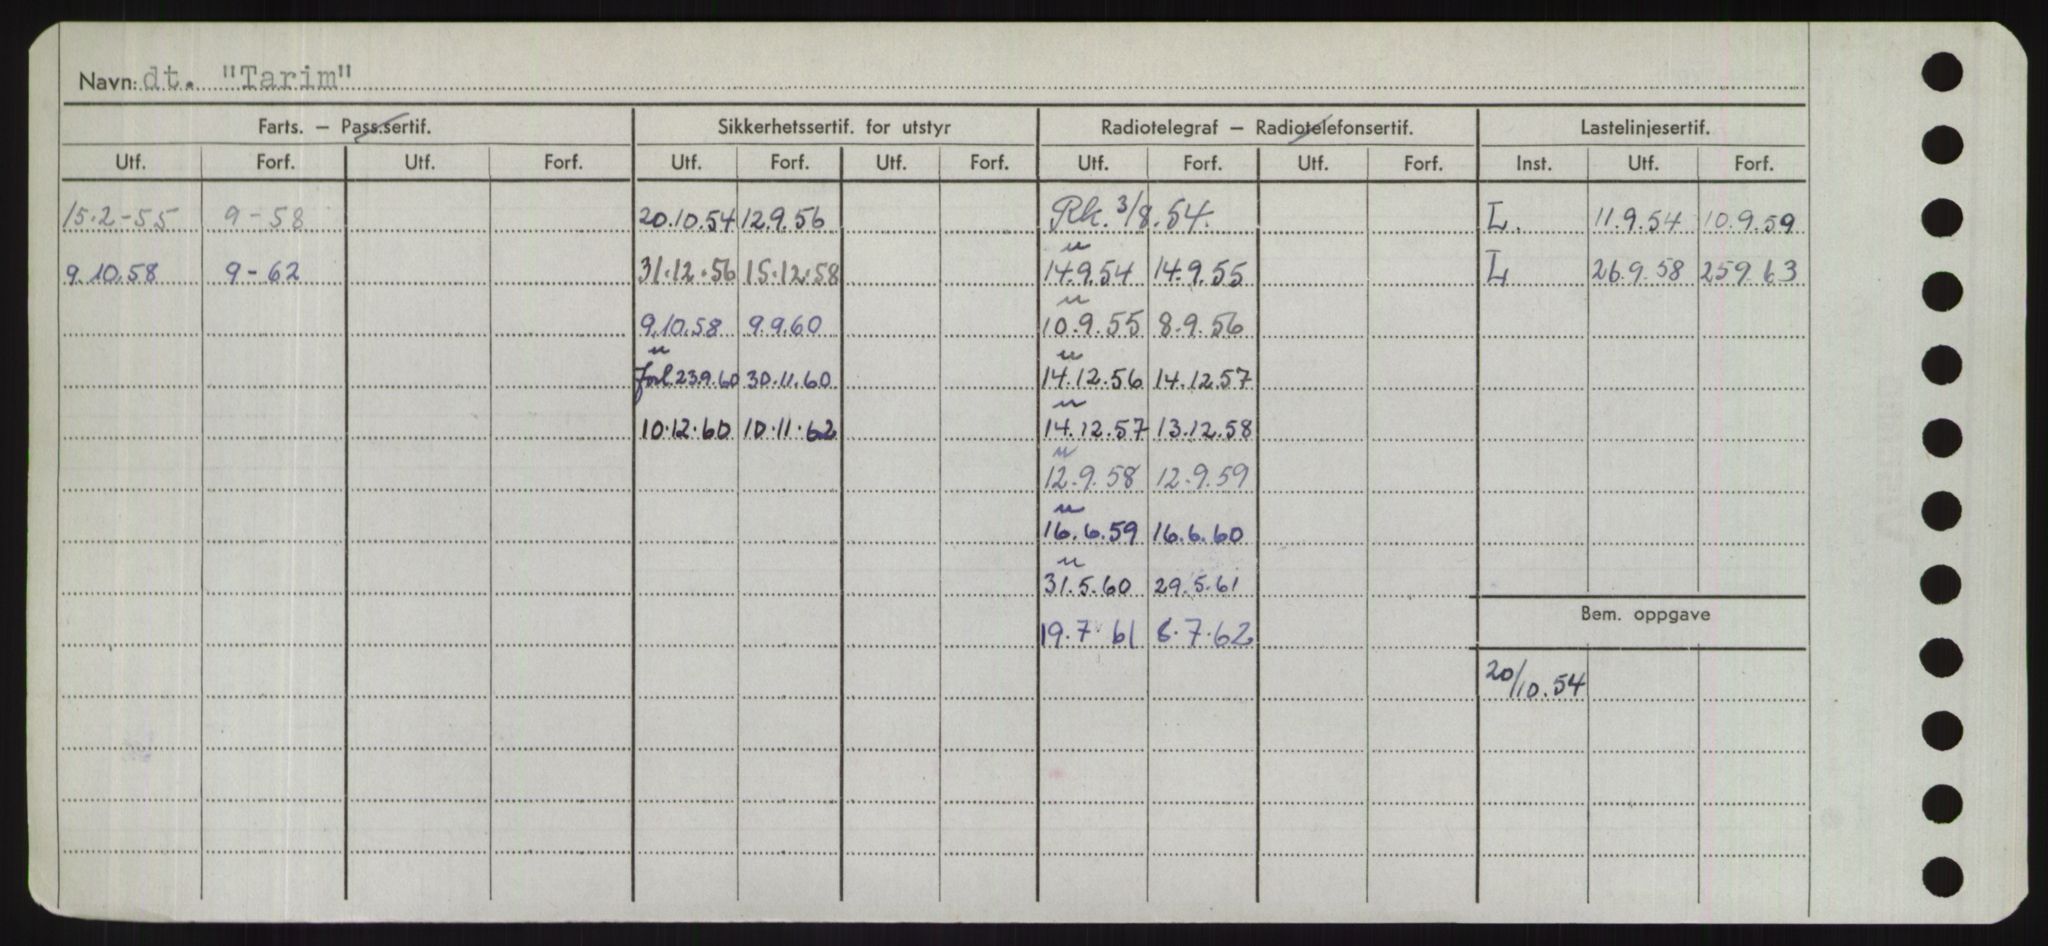 Navn: dt. "Tarim"
Farts. – Pass.sertif. Sikkerhetssertif. for utstyr Radiotelegraf – Radiotelefonsertif. Lastelinjesertif.
Utf. Forf. Utf. Forf. Utf. Forf. Utf. Forf. Utf. Forf. Utf. Forf. Inst. Utf. Forf.
15.2-55 9-58 20.10.54 12.9.56 Rk. 3/8.54. L. 11.9.54 10.9.59
u
9.10.58 9-62 31.12.56 15.12.58 14.9.54 14.9.55 L 26.9.58 259.63
u
9.10.58 9.9.60 10.9.55 8.9.56
u u
forl. 23.9.60 30.11.60 14.12.56 14.12.57
u
10.12.60 10.11.62 14.12.57 13.12.58
u
12.9.58 12.9.59
u
16.6.59 16.6.60
u
31.5.60 29.5.61
Bem. oppgave
19.7.61 8.7.62
20/10.54